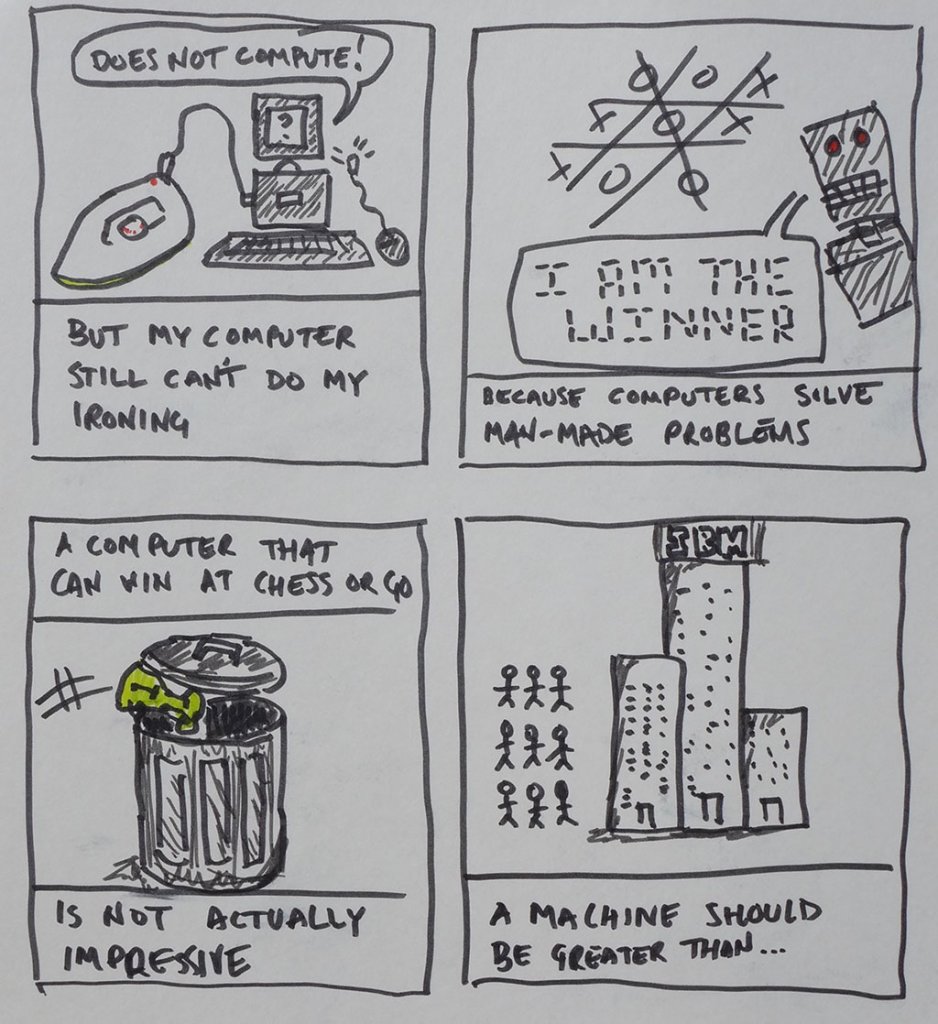 DOES NOT COMPUTE!
?
BUT MY COMPUTER
STILL CAN'T DO MY
IRONING
O O X
X O X
X O O
I AM THE
WINNER
BECAUSE COMPUTERS SOLVE
MAN-MADE PROBLEMS
A COMPUTER THAT
CAN WIN AT CHESS OR GO
IS NOT ACTUALLY
IMPRESSIVE
IBM
A MACHINE SHOULD
BE GREATER THAN...